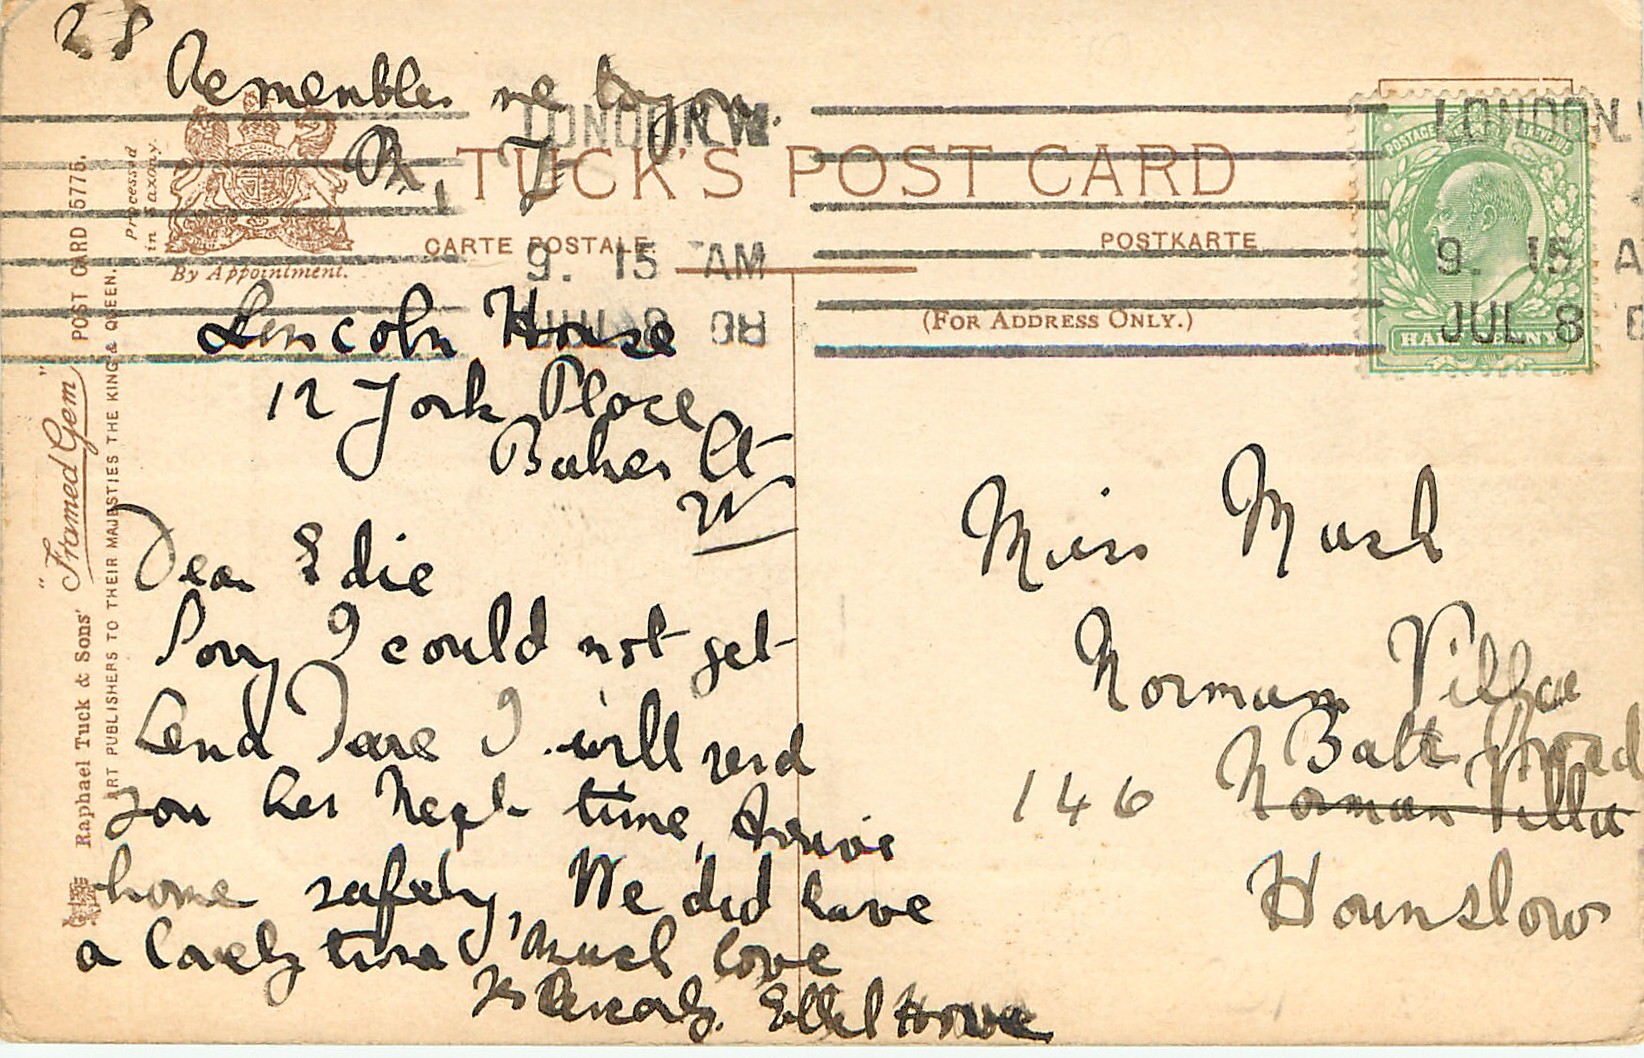 28
Remember me to your
R. J.
LONDON.W.
LONDON.W
TUCK'S POST CARD
CARTE POSTALE
POSTKARTE
9. 15 AM
9. 15 A
JUL 8 08
JUL 8
By Appointment.
(FOR ADDRESS ONLY.)
HALFPENNY
POSTAGE REVENUE
Processed
in Saxony.
Raphael Tuck & Sons' "Framed Gem" POST CARD 5775.
ART PUBLISHERS TO THEIR MAJESTIES THE KING & QUEEN.
Lincoln House
12 York Place
Baker St
W
Dear Edie
Sorry I could not get
Lena I will send
you her Next time, Arrive
home safely, We did have
a lovely time, Much love
Yrs Sincerely. Ethel Howe
Miss Mush
Norman Villa
Road
146 Norman Villa
Hounslow